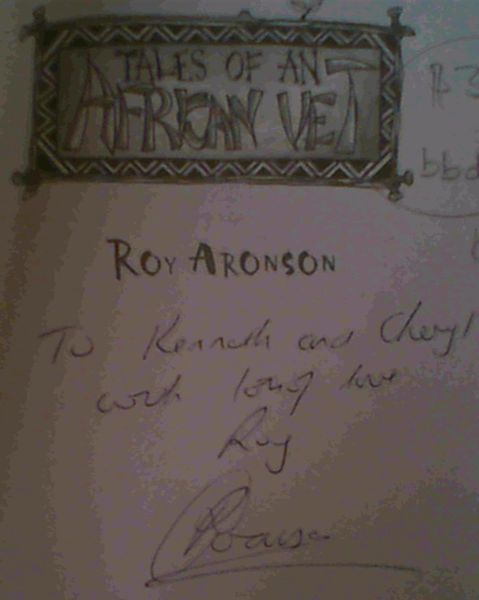 TALES OF AN
AFRICAN VET
ROY ARONSON
To Kenneth and Cheryl
with
love
Roy